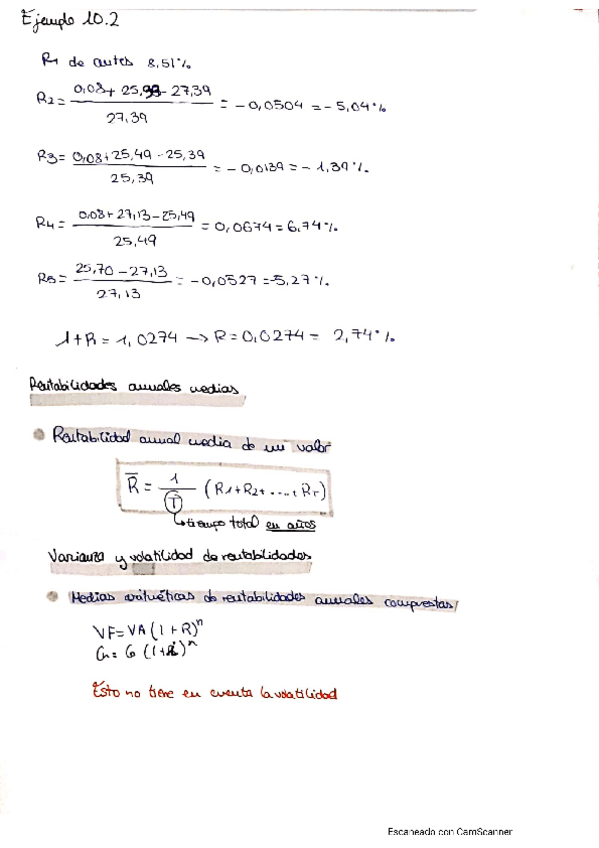 Ejemplo 10.2
R1 de antes 8,51%
R2 = (0,08 + 25,93 - 27,39) / 27,39 = -0,0504 = -5,04%
R3 = (0,08 + 25,49 - 25,39) / 25,39 = -0,0139 = -1,39%.
R4 = (0,08 + 27,13 - 25,49) / 25,49 = 0,0674 = 6,74%
R5 = (25,70 - 27,13) / 27,13 = -0,0527 = -5,27%.
1+R = 1,0274 → R = 0,0274 = 2,74%
Rentabilidades anuales medias
Rentabilidad anual media de un valor
R̅ = 1/T (R1+R2+....+RT)
↳ tiempo total en años
Varianza y volatilidad de rentabilidades
Medias aritméticas de rentabilidades anuales compuestas
VF = VA (1+R)^n
Cn = C0 (1+i)^n
Esto no tiene en cuenta la volatilidad
Escaneado con CamScanner